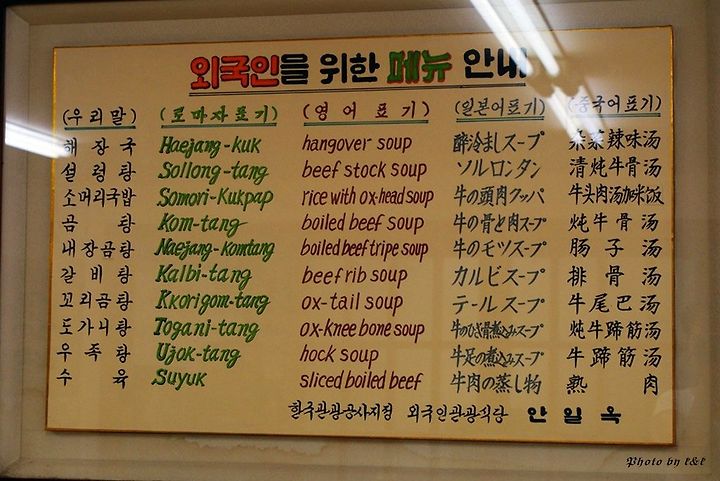 외국인을 위한 메뉴 안내
(우리말) (로마자표기) (영어표기) (일본어표기) (중국어표기)
해장국 Haejang-kuk hangover soup 酔冷ましスープ 杂菜辣味汤
설렁탕 Sollong-tang beef stock soup ソルロンタン 清炖牛骨汤
소머리국밥 Somori-Kukpap rice with ox-head soup 牛の頭肉クッパ 牛头肉汤加米饭
곰탕 Kom-tang boiled beef soup 牛の骨と肉スープ 炖牛骨汤
내장곰탕 Naejang-Komtang boiled beef tripe soup 牛のモツスープ 肠子汤
갈비탕 Kalbi-tang beef rib soup カルビスープ 排骨汤
꼬리곰탕 Kkorigom-tang ox-tail soup テールスープ 牛尾巴汤
도가니탕 Togani-tang ox-knee bone soup 牛のひざ骨煮込みスープ 炖牛蹄筋汤
우족탕 Ujok-tang hock soup 牛足の煮込みスープ 牛蹄筋汤
수육 Suyuk sliced boiled beef 牛肉の蒸し物 熟肉
한국관광공사지정 외국인관광식당 안일옥
Photo by l&l